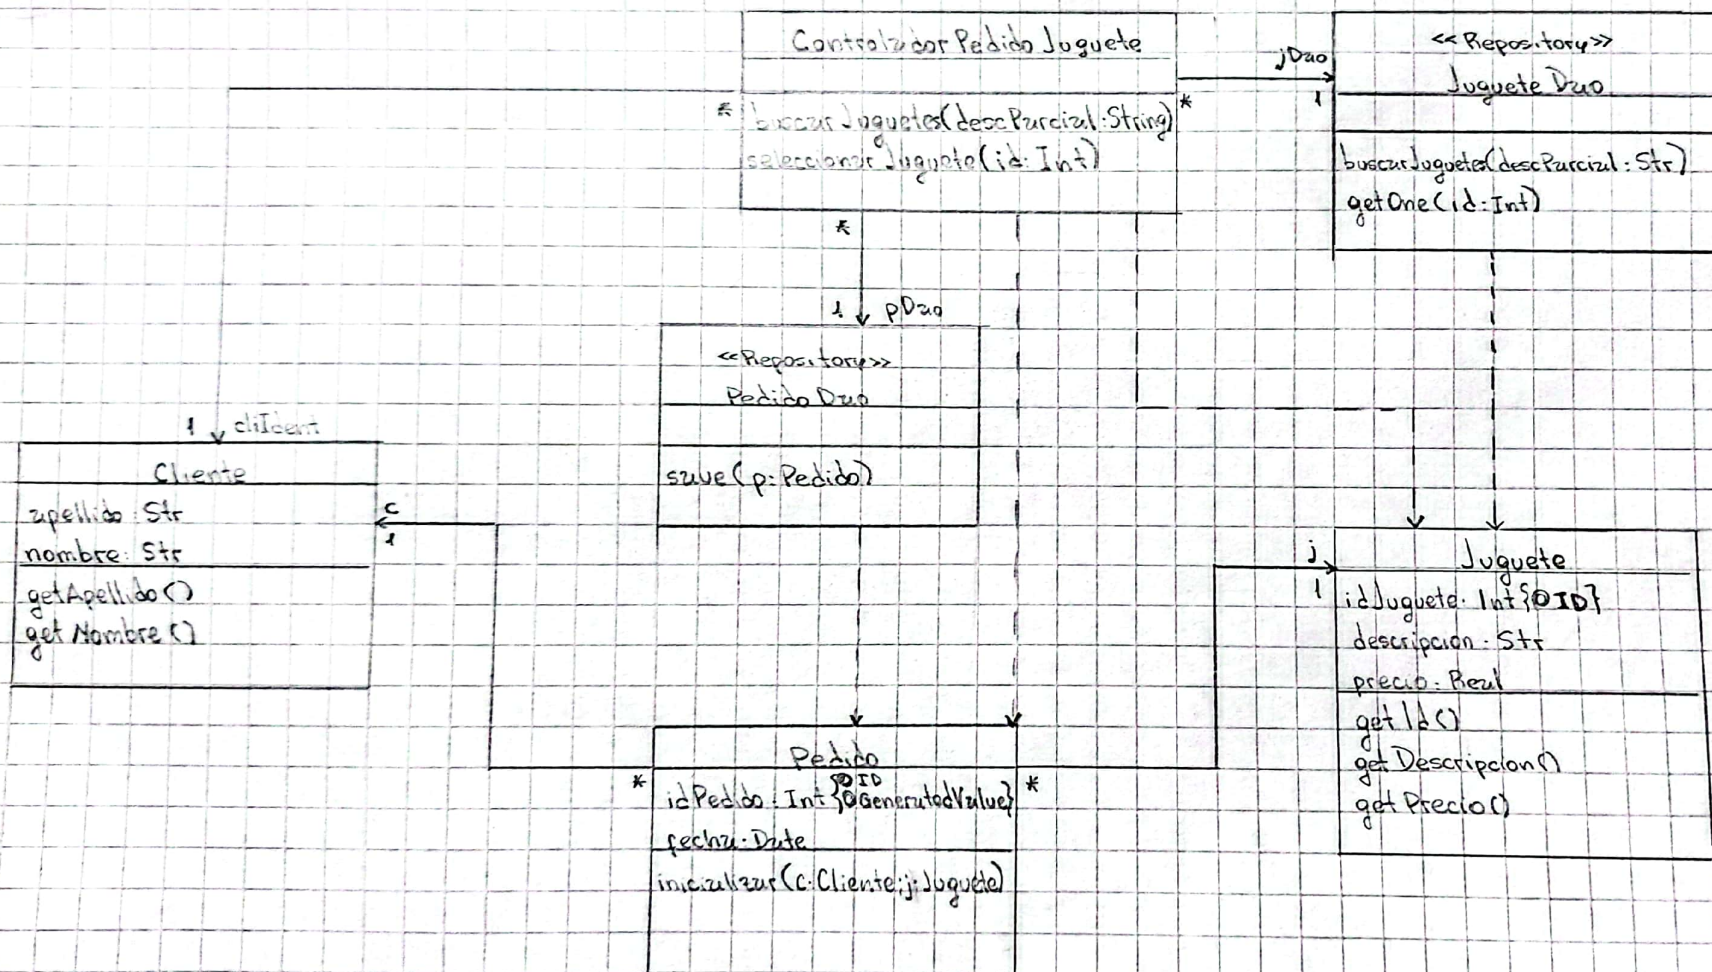 Controlador Pedido Juguete
*
buscarJuguetes(descParcial:String)
seleccionarJuguete(id: Int)
*
*
jDao
1
<<Repository>>
Juguete Dao
buscarJuguetes(descParcial: Str)
getOne(id:Int)
1
pDao
<<Repository>>
Pedido Dao
save(p:Pedido)
1
cliIdent
Cliente
apellido: Str
nombre: Str
getApellido()
getNombre()
c
1
j
1
Juguete
idJuguete: Int{@ID}
descripcion: Str
precio: Real
getId()
getDescripcion()
getPrecio()
*
*
Pedido
@ID
idPedido: Int{@GeneratedValue}
fecha: Date
inicializar(c:Cliente;j:Juguete)